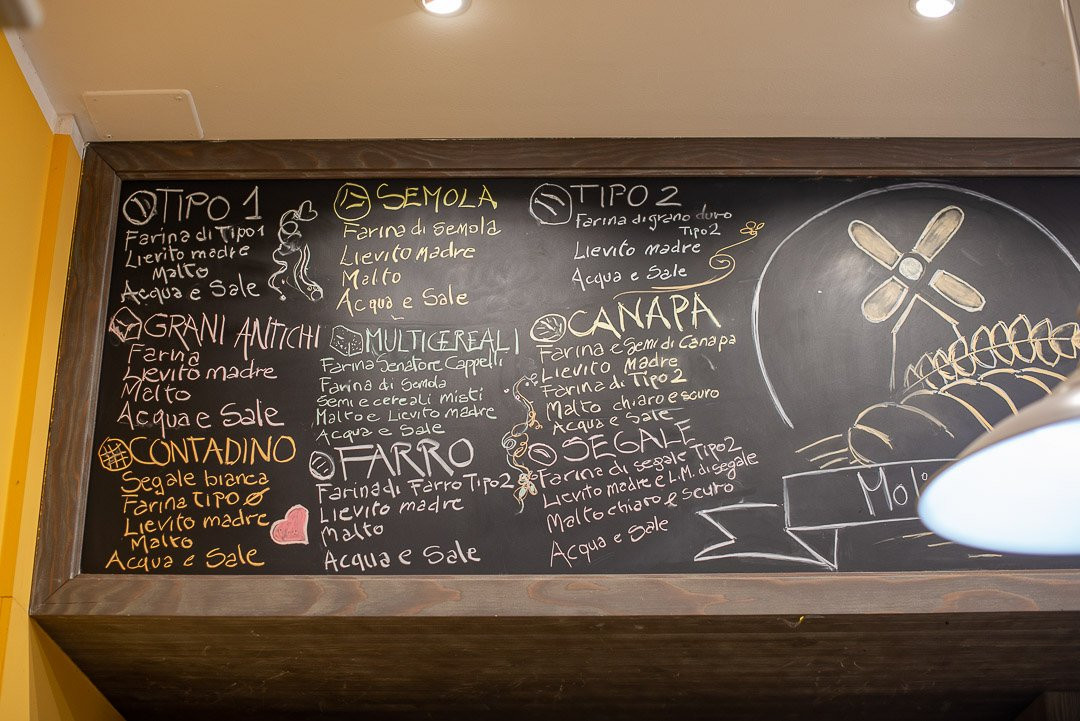 TIPO 1
Farina di Tipo 1
Lievito madre
Malto
Acqua e Sale
SEMOLA
Farina di semola
Lievito madre
Malto
Acqua e Sale
TIPO 2
Farina di grano duro
Tipo 2
Lievito madre
Acqua e Sale
GRANI ANTICHI
Farina
Lievito madre
Malto
Acqua e Sale
MULTICEREALI
Farina Senatore Cappelli
Farina di Semola
Semi e cereali misti
Malto e Lievito madre
Acqua e Sale
CANAPA
Farina e Semi di Canapa
Lievito Madre
Farina di Tipo 2
Malto chiaro e scuro
Acqua e Sale
CONTADINO
Segale bianca
Farina TIPO 0
Lievito madre
Malto
Acqua e Sale
FARRO
Farina di Farro Tipo 2
Lievito madre
Malto
Acqua e Sale
SEGALE
Farina di segale Tipo 2
Lievito madre e L.M. di segale
Malto chiaro e scuro
Acqua e Sale